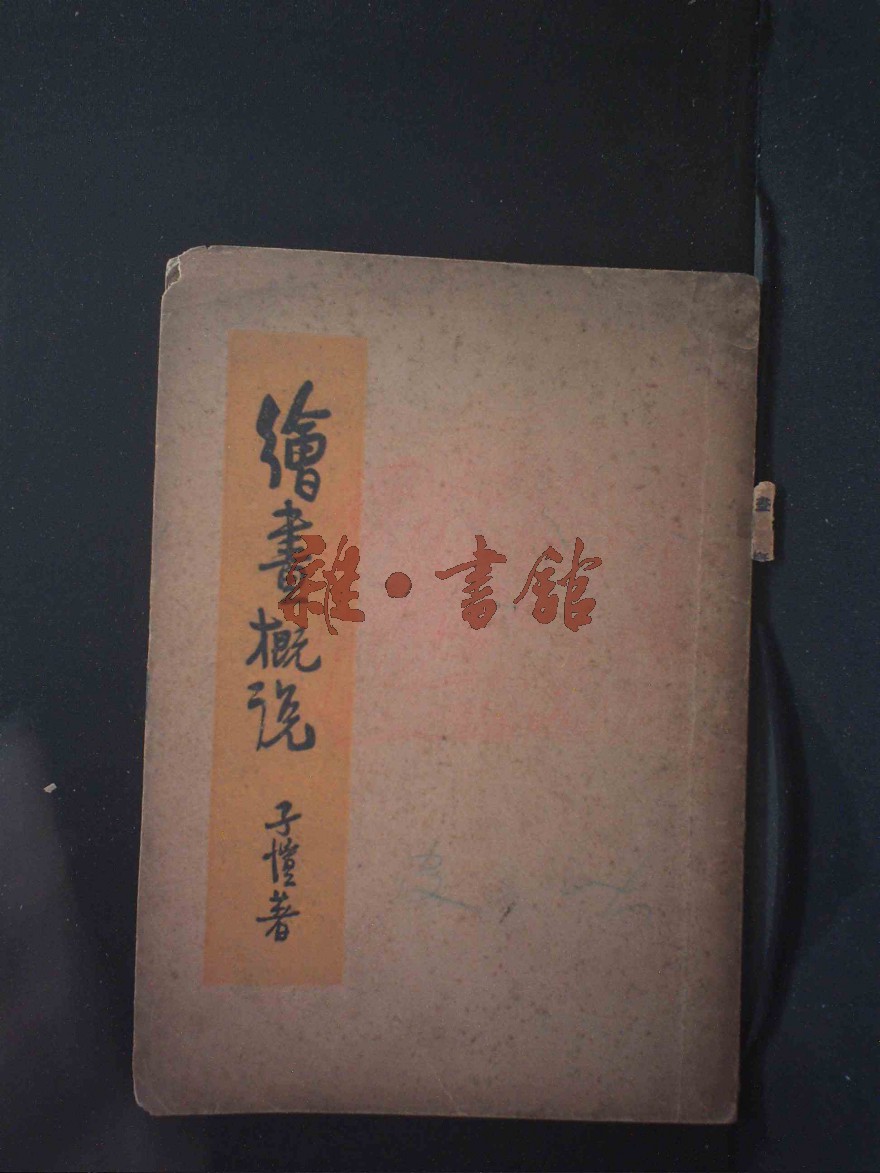 繪畫概説
子愷著
雜·書館